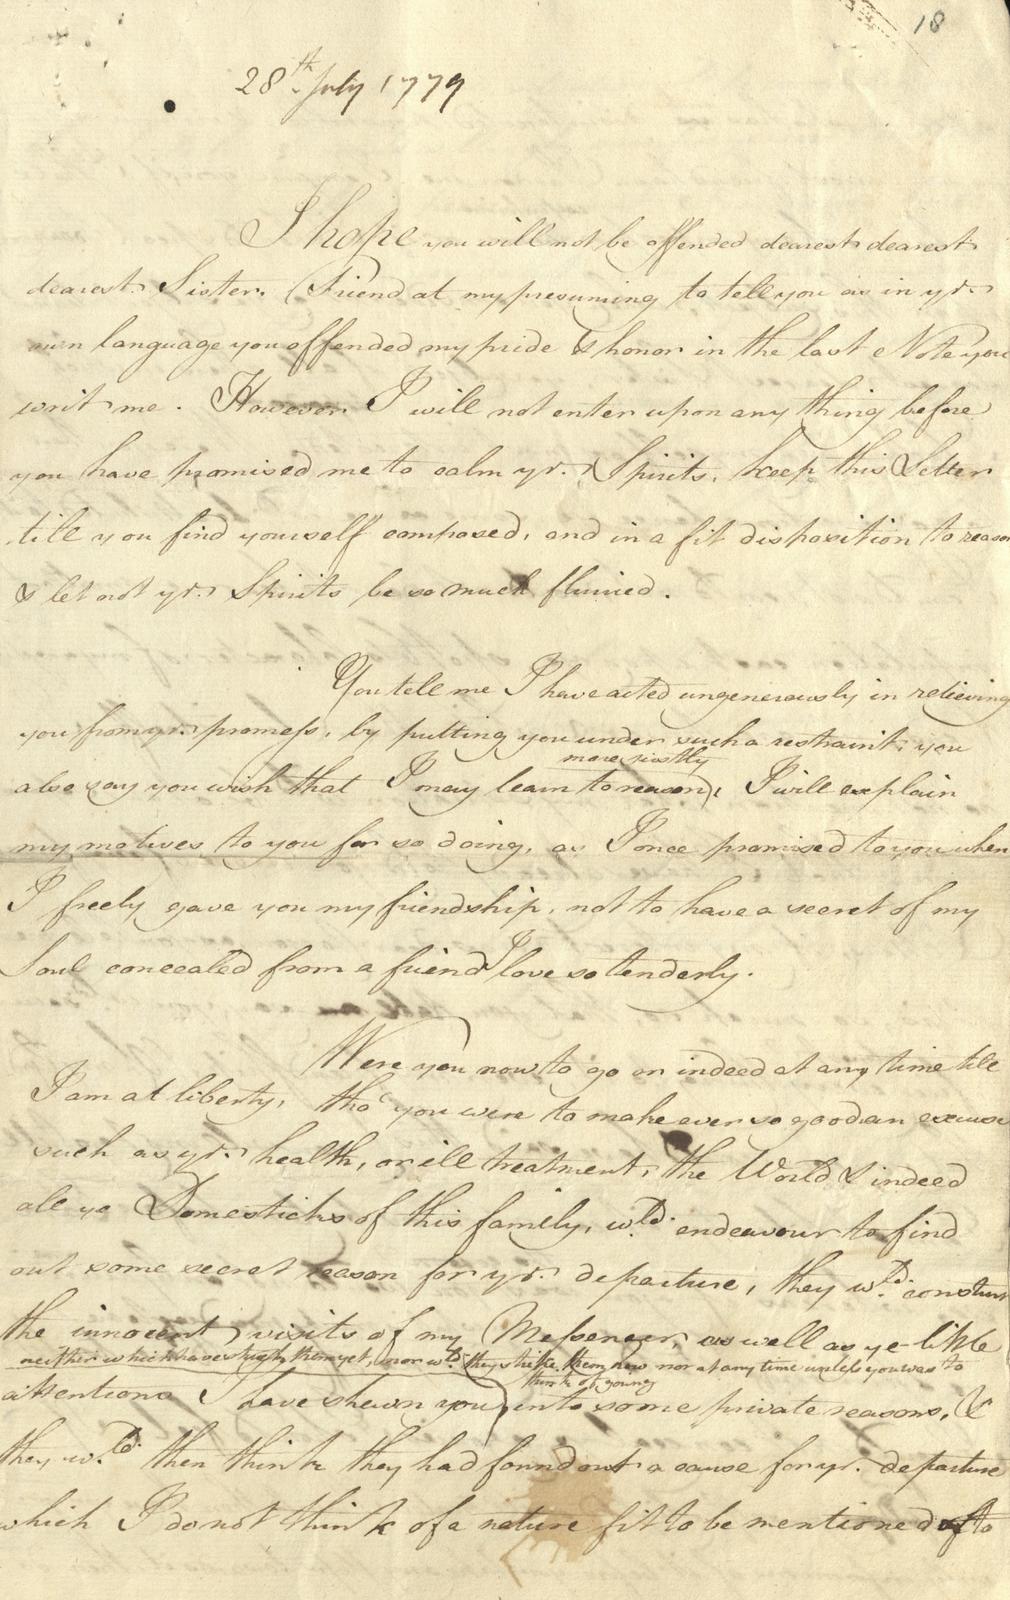 18
28th July 1779
I hope you will not be offended dearest dearest
dearest Sister, Friend at my presuming to tell you as in yr.
own language you offended my pride & honor in the last Note you
writ me. However I will not enter upon any thing before
you have promised me to calm yr. Spirits, keep this Letter
till you find yourself composed, and in a fit disposition to reason
& let not yr. Spirits be so much flurried.
You tell me I have acted ungenerously in relieving
you from yr. promess, by putting you under such a restraint; you
more justly
also say you wish that I may learn to reason, I will explain
my motives to you for so doing, as I once promised to you when
I freely gave you my friendship, not to have a secret of my
Soul concealed from a friend I love so tenderly.
Were you now to go or indeed at any time till
I am at liberty, tho' you were to make ever so good an excuse
such as yr. health, or ill treatment, the World & indeed
all ye Domesticks of this family, wld. endeavour to find
out some secret reason for yr. departure, they wld. construe
the innocent visits of my Messenger, as well as ye little
neither which have struck them yet, nor wld. they strike them now nor at any time unless you was to
think of going
attentions I have shewn you, into some private reasons, &
they wld. then think they had found out a cause for yr. departure
which I do not think of a nature fit to be mentioned to